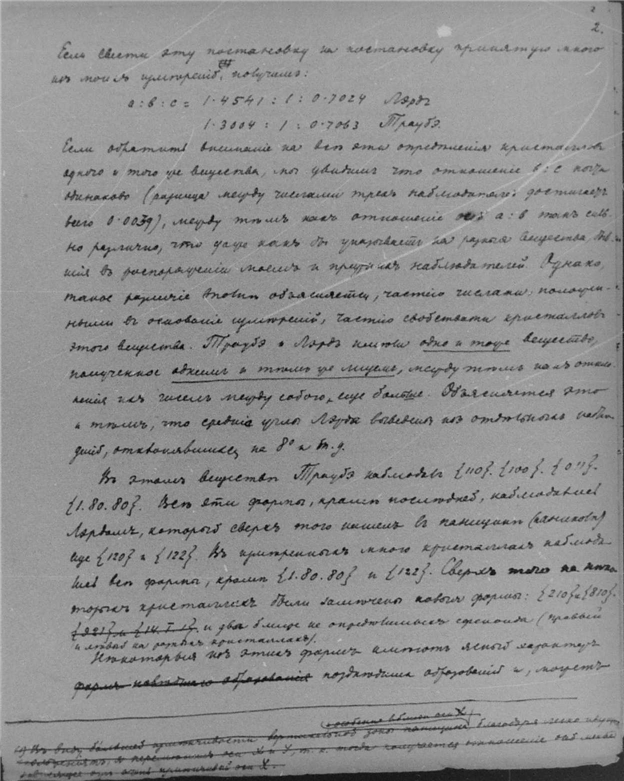 2.
Если свести эту постановку на постановку принятую мною
из моихъ измѣренiй, получимъ:
a : b : c = 1·4541 : 1 : 0·7024 Лэрдъ
1·3004 : 1 : 0·7063 Траубэ.
Если обратить вниманiе на всѣ эти опредѣленiя кристалловъ
одного и того же вещества, мы увидимъ что отношенiе b : c почти
одинаково (разница между числами трехъ наблюдателей достигаетъ
всего 0·0039), между тѣмъ какъ отношенiе осей a : b такъ силь-
но различно, что даже какъ бы указываетъ на разныя вещества, быв-
шiя въ распоряженiи моемъ и прежнихъ наблюдателей. Однако,
такое различiе вполнѣ объясняется, частiю числами, положен-
ными въ основанiе измѣренiй, частiю свойствами кристалловъ
этого вещества. Траубэ и Лэрдъ имѣли одно и тоже вещество,
полученное однимъ и тѣмъ же лицомъ, между тѣмъ какъ откло-
ненiя ихъ чиселъ между собою, еще больше. Объясняется это
и тѣмъ, что среднiе углы Лэрда выведены изъ отдѣльныхъ наблю-
денiй, отклонявшихся на 8° и т. д.
Въ этомъ веществѣ Траубэ наблюдалъ {110}. {100}. {011}.
{1.80.80}. Всѣ эти формы, кромѣ послѣдней, наблюдались
Лэрдомъ, который сверхъ того нашелъ въ
еще {120} и {122}. Въ измѣренныхъ мною кристаллахъ наблюда-
лись всѣ формы, кромѣ {1.80.80} и {122}. Сверхъ того на нѣко-
торыхъ кристаллахъ были замѣчены новыя формы: {210} и {810}.
и два ближе не опредѣлимыхъ сфеноида (правый
и лѣвый на разныхъ кристаллахъ).
Некоторыя изъ этихъ формъ имѣютъ ясный характеръ
формъ позднѣйшихъ образованiй и, можетъ
(особенно вблизи оси X)
Въ виду большей вертикальной зоны благодаря легко
оси X и Y, т. е. тогда получается отношенiе осей
оси X.